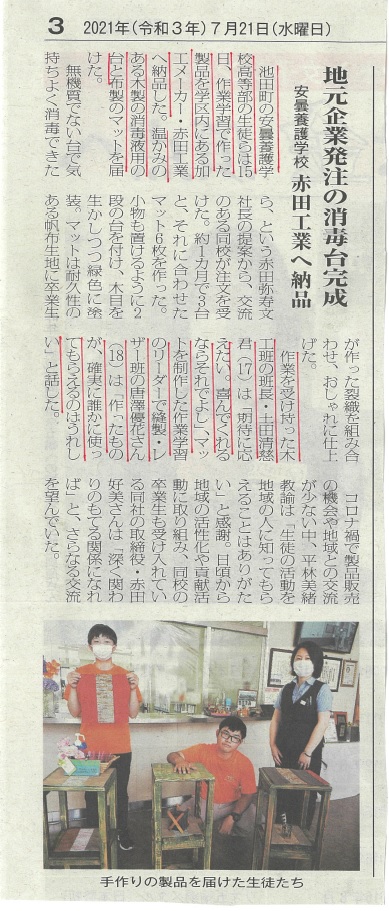 3 2021年(令和3年)7月21日(水曜日)
地元企業発注の消毒台完成
安曇養護学校 赤田工業へ納品
池田町の安曇養護学
校高等部の生徒らは15
日、作業学習で作った
製品を学区内にある加
工メーカー・赤田工業
へ納品した。温かみの
ある木製の消毒液用の
台と布製のマットを届
けた。
無機質でない台で気
持ちよく消毒できた
ら、という赤田弥寿文
社長の提案から、交流
のある同校が注文を受
けた。約1カ月で3台
と、それに合わせた
マット6枚を作った。
小物も置けるように2
段の台を付け、木目を
生かしつつ緑色に塗
装。マットは耐久性の
ある帆布生地に卒業生
が作った裂織を組み合
わせ、おしゃれに仕上
げた。
作業を受け持った木
工班の班長・土田清慈
君(17)は「期待に応
えたい。喜んでくれる
ならそれでよし」、マッ
トを制作した作業学習
のリーダーで縫製・レ
ザー班の唐澤優花さん
(18)は「作ったもの
が、確実に誰かに使っ
てもらえるのはうれし
い」と話した。
コロナ禍で製品販売
の機会や地域との交流
が少ない中、平林美緒
教諭は「生徒の活動を
地域の人に知ってもら
えることはありがた
い」と感謝。日頃から
地域の活性化や貢献活
動に取り組み、同校の
卒業生も受け入れてい
る同社の取締役・赤田
好美さんは「深く関わ
りのもてる関係になれ
ば」と、さらなる交流
を望んでいた。
手作りの製品を届けた生徒たち